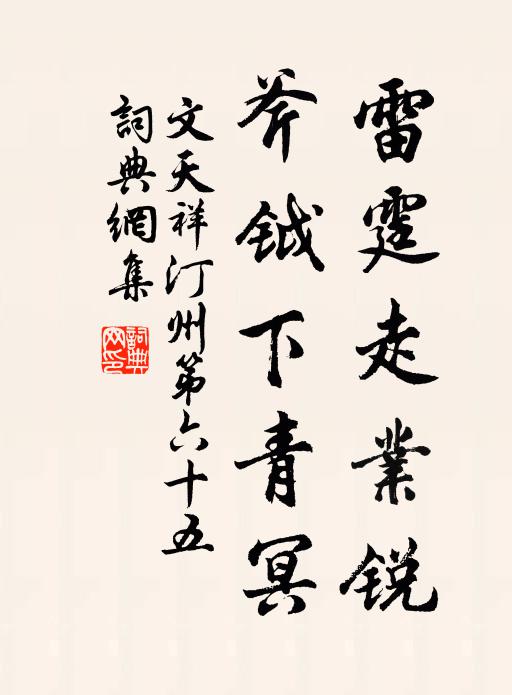 雷霆走業銳
斧鉞下青冥
文天祥汀州第六十五
詞典網集
詞典網印